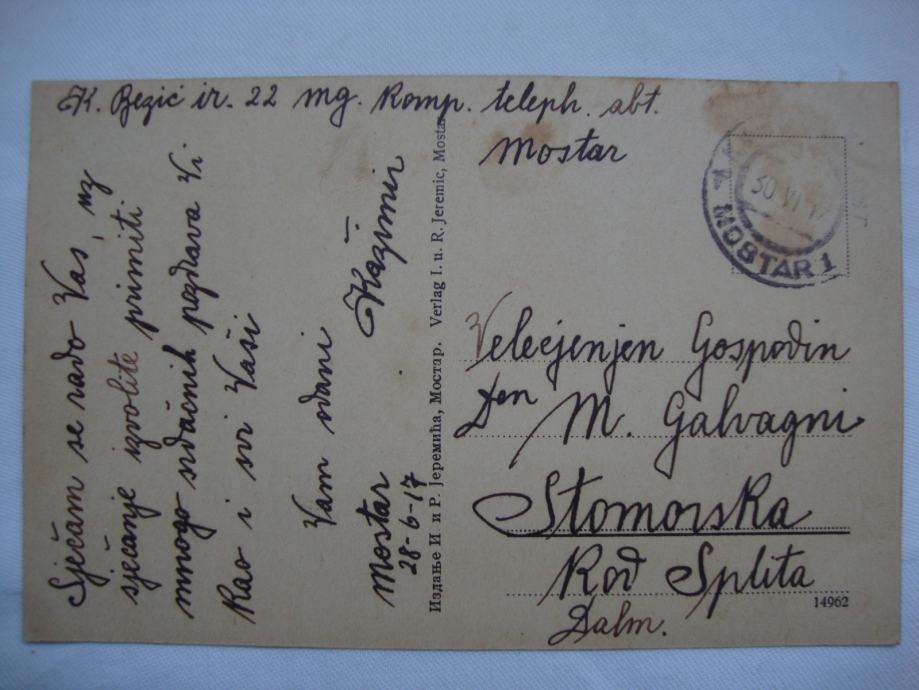 K. Bezić ir. 22 mg. Komp. teleph. abt.
Mostar
Sjećam se rado Vas, uz
sjećanje izvolite primiti
mnogo srdačnih pozdrava Vi
Kao i svi Vaši
Vam odani
Kazimir
Mostar
28-6-17
Издање И. и Р. Јеремића, Мостар. Verlag I. u. R. Jeremic, Mostar
30 VI 17
MOSTAR 1
Velecjenjen Gospodin
Den M. Galvagni
Stomorska
Kod Splita
Dalm.
14962